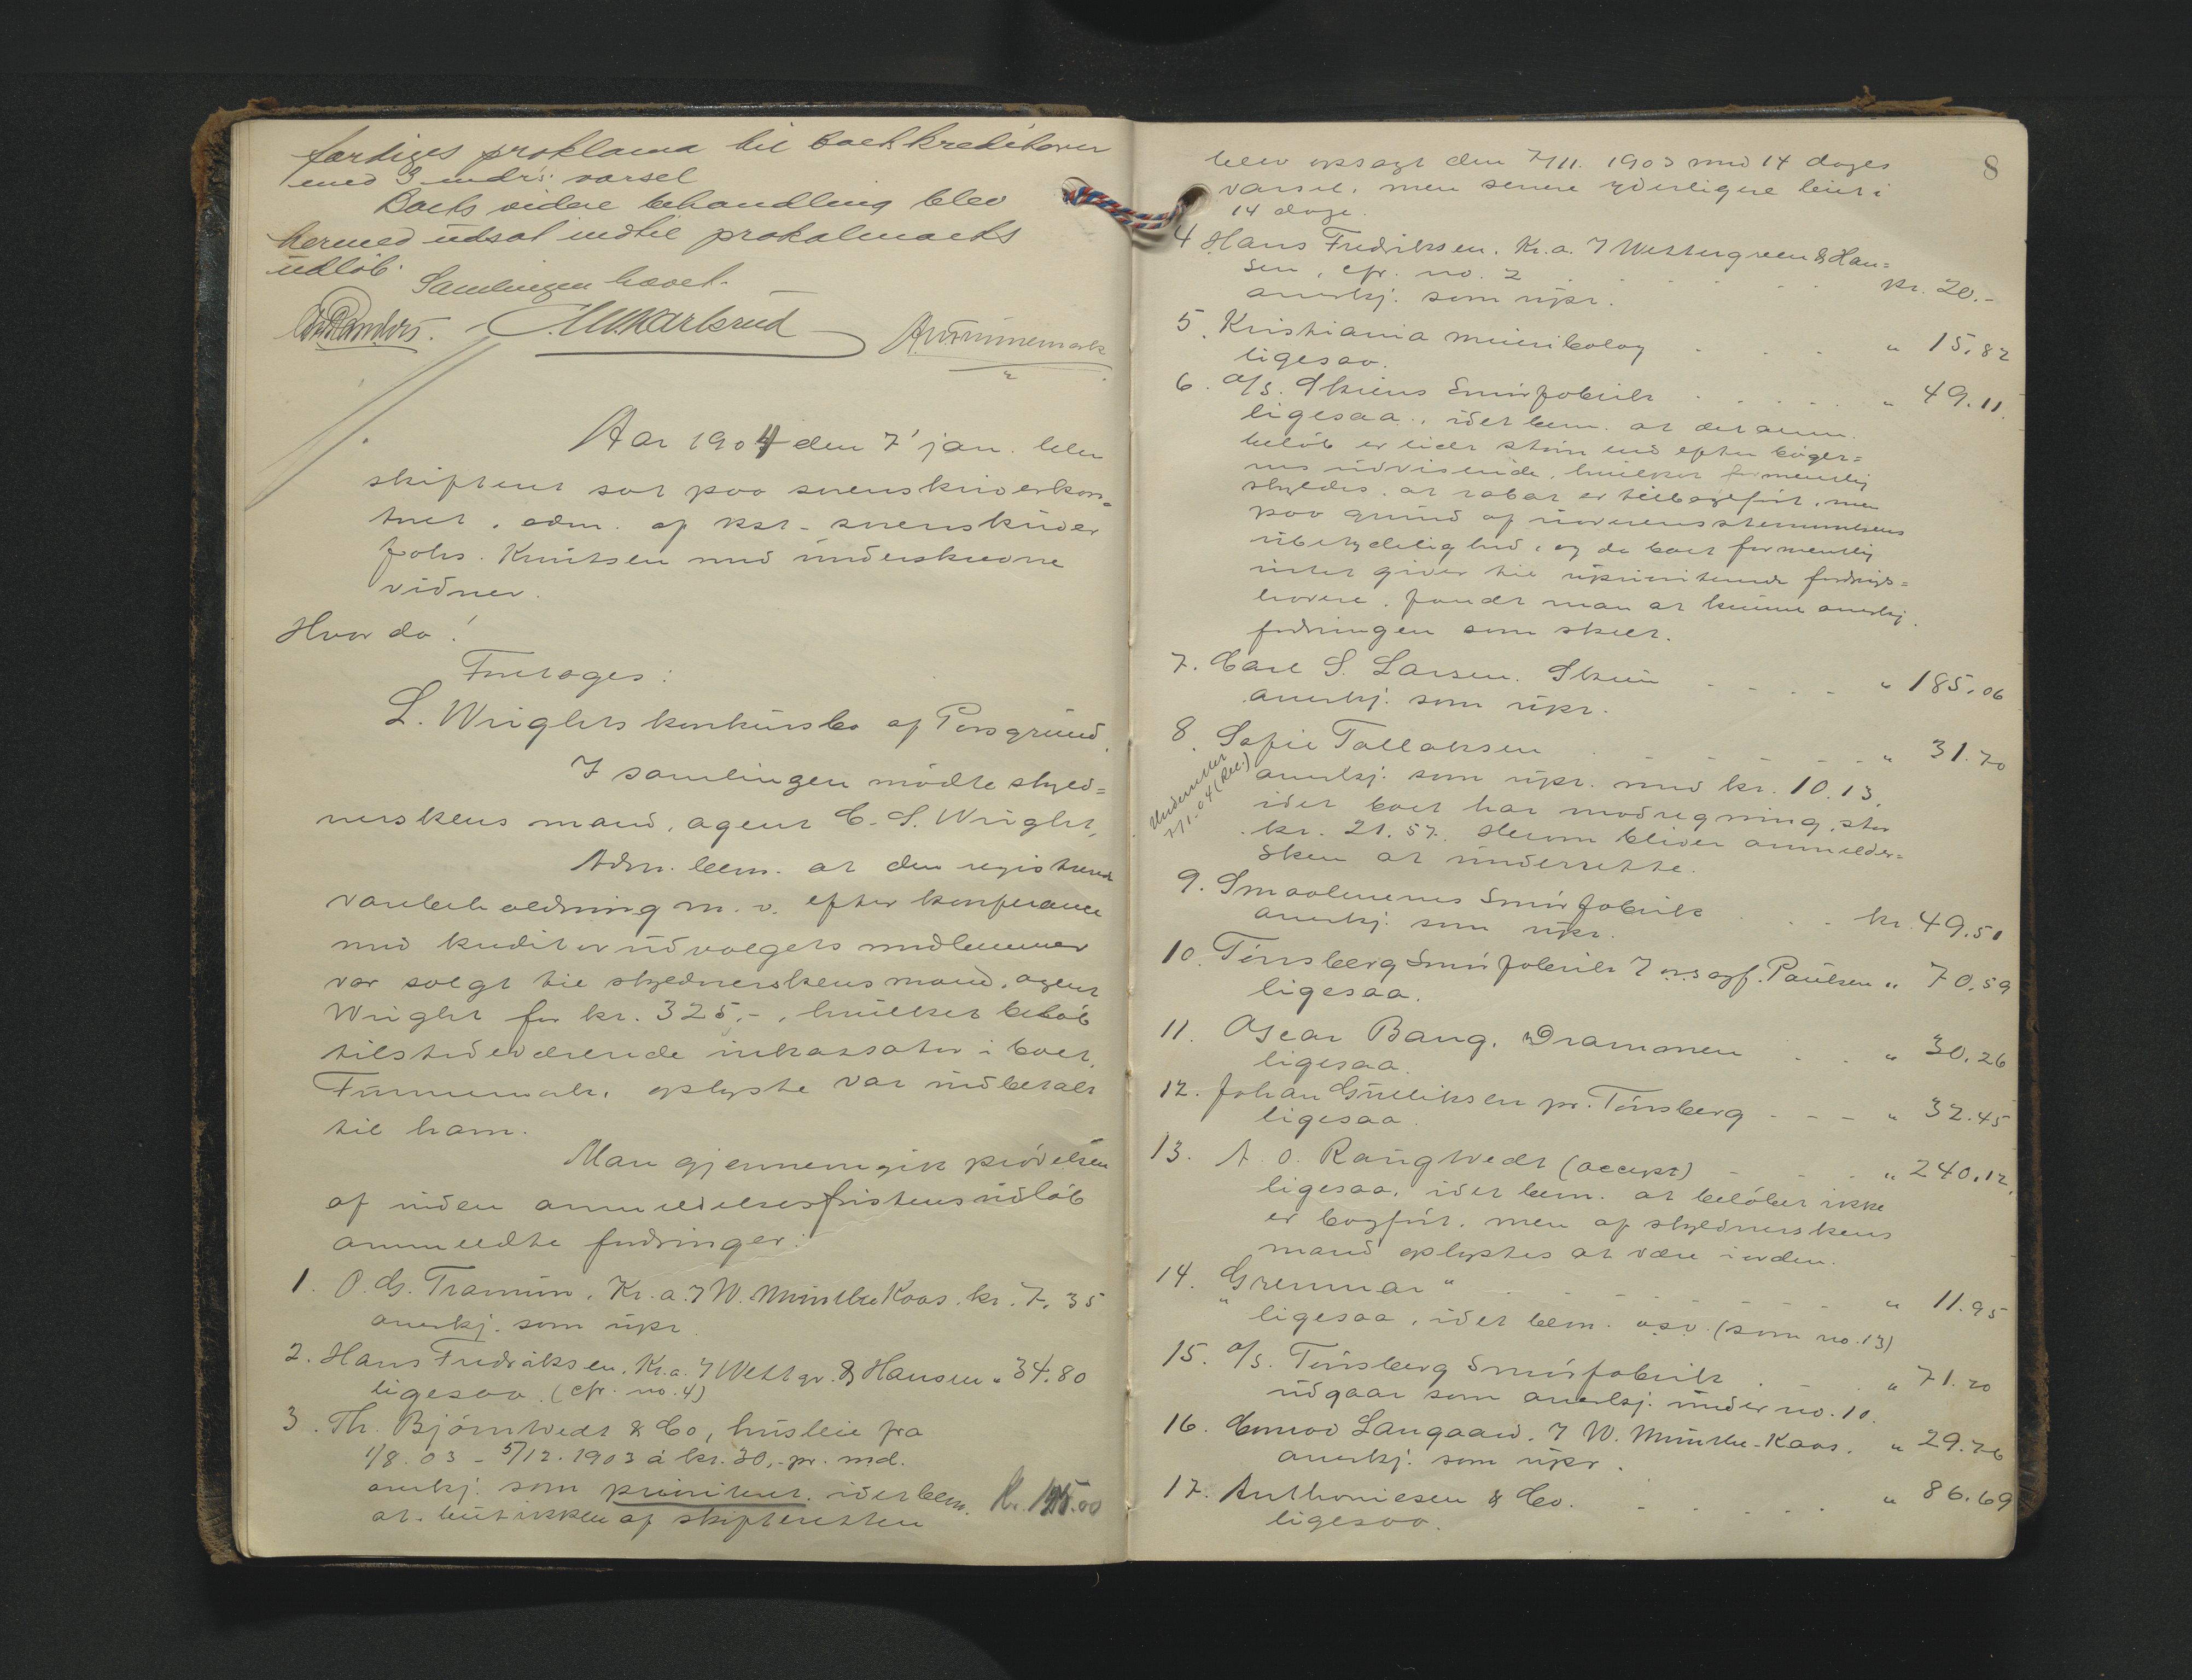 færdiges proklama til boets kreditorer
med 3 mdr's varsel
Boets videre behandling blev
hermed udsat indtil proklamaets
udløb.
Samlingen hævet.
C. M. Karlsrud
A. W. Finnemark
Aar 1904 den 7' jan. blev
skifteret sat paa sorenskriverkon-
toret, adm. af kst. sorenskriver
Johs. Knutsen med underskrevne
vidner.
Hvor da!
Foretoges:
L. Wrights konkursbo af Porsgrund.
I samlingen mødte skyld=
nerskens mand, agent C. S. Wright.
Adm. bem. at den registrerede
varebeholdning m. v. efter konferance
med kreditorudvalgets medlemmer
var solgt til skyldnerskens mand, agent
Wright for kr. 325,-, hvilket beløb
tilstedeværende inkassator i boet,
Finnemark, oplyste var indbetalt
til ham.
Man gjennemgik prøvelsen
af inden anmeldelsesfristens udløb
anmeldte fordringer:
1. O. G. Tramun, Kr.a. ɔ: W. Munthe Kaas. kr. 7,35
anerkj. som upr.
2. Hans Fredriksen, Kr.a. ɔ: Westgr. & Hansen " 34.80
ligesaa (cfr. no. 4)
3. Th. Bjørntvedt & Co, husleie fra
1/8. 03 - 5/12. 1903 á kr. 30,- pr. md.
anerkj. som prioriteret, idet bem. kr. 125.00
at butikken af skifteretten
8
blev opsagt den 7/11. 1903 med 14 dages
varsel, men senere yderligere leiet i
14 dage.
4 Hans Fredriksen, Kr.a. ɔ: Westergreen & Han=
sen, cfr. no. 2 . . . . . kr. 20.-
anerkj. som upr.
5. Kristiania meieribolag . . . " 15,82
ligesaa.
6. a/s. Skiens Smørfabrik . . . . . " 49.11.
ligesaa, idet bem. at det anm.
beløb er lidt større end efter bøger=
nes udvisende, hvilket formentlig
skyldes, at rabat er tilbageført, men
paa grund af uoverensstemmelsens
ubetydelighed, og da boet formentlig
intet giver til uprioriterede fordrings=
havere, fandt man at kunne anerkj.
fordringen som skeet.
7. Carl S. Larsen. Skien . . . . " 185,06
anerkj. som upr.
8. Sofie Tallaksen . . . . " 31.70
Underrettet
7/1.04 (Rec.)
anerkj. som upr. med kr. 10.13,
idet boet har modregning, stor
kr. 21.57. Herom bliver anmelder=
sken at underrette.
9. Smaalenenes Smørfabrik . . . kr. 49.51
anerkj. som upr.
10. Tønsberg Smørfabrik ɔ: o.r.sagf. Paulsen " 70,59
ligesaa.
11. Oscar Bang, Drammen . . " 30,26
ligesaa.
12. Johan Gulliksen pr. Tønsberg - - - " 32.45
ligesaa.
13. A. O. Raugtvedt (accept) - - - " 240,12.
ligesaa, idet bem. at beløbet ikke
er bogført, men af skyldnerskens
mand oplystes at være i orden.
14. "Grenmar" . . . . . " 11.95
ligesaa, idet bem. osv. (som no. 13)
15. a/s. Tønsberg Smørfabrik . . . " 71.20
udgaar som anerkj. under no. 10.
16. Conrad Langaard. ɔ: W. Munthe-Kaas. " 29.76
anerkj. som upr.
17. Anthoniesen & Co. . . . . " 86.69
ligesaa.